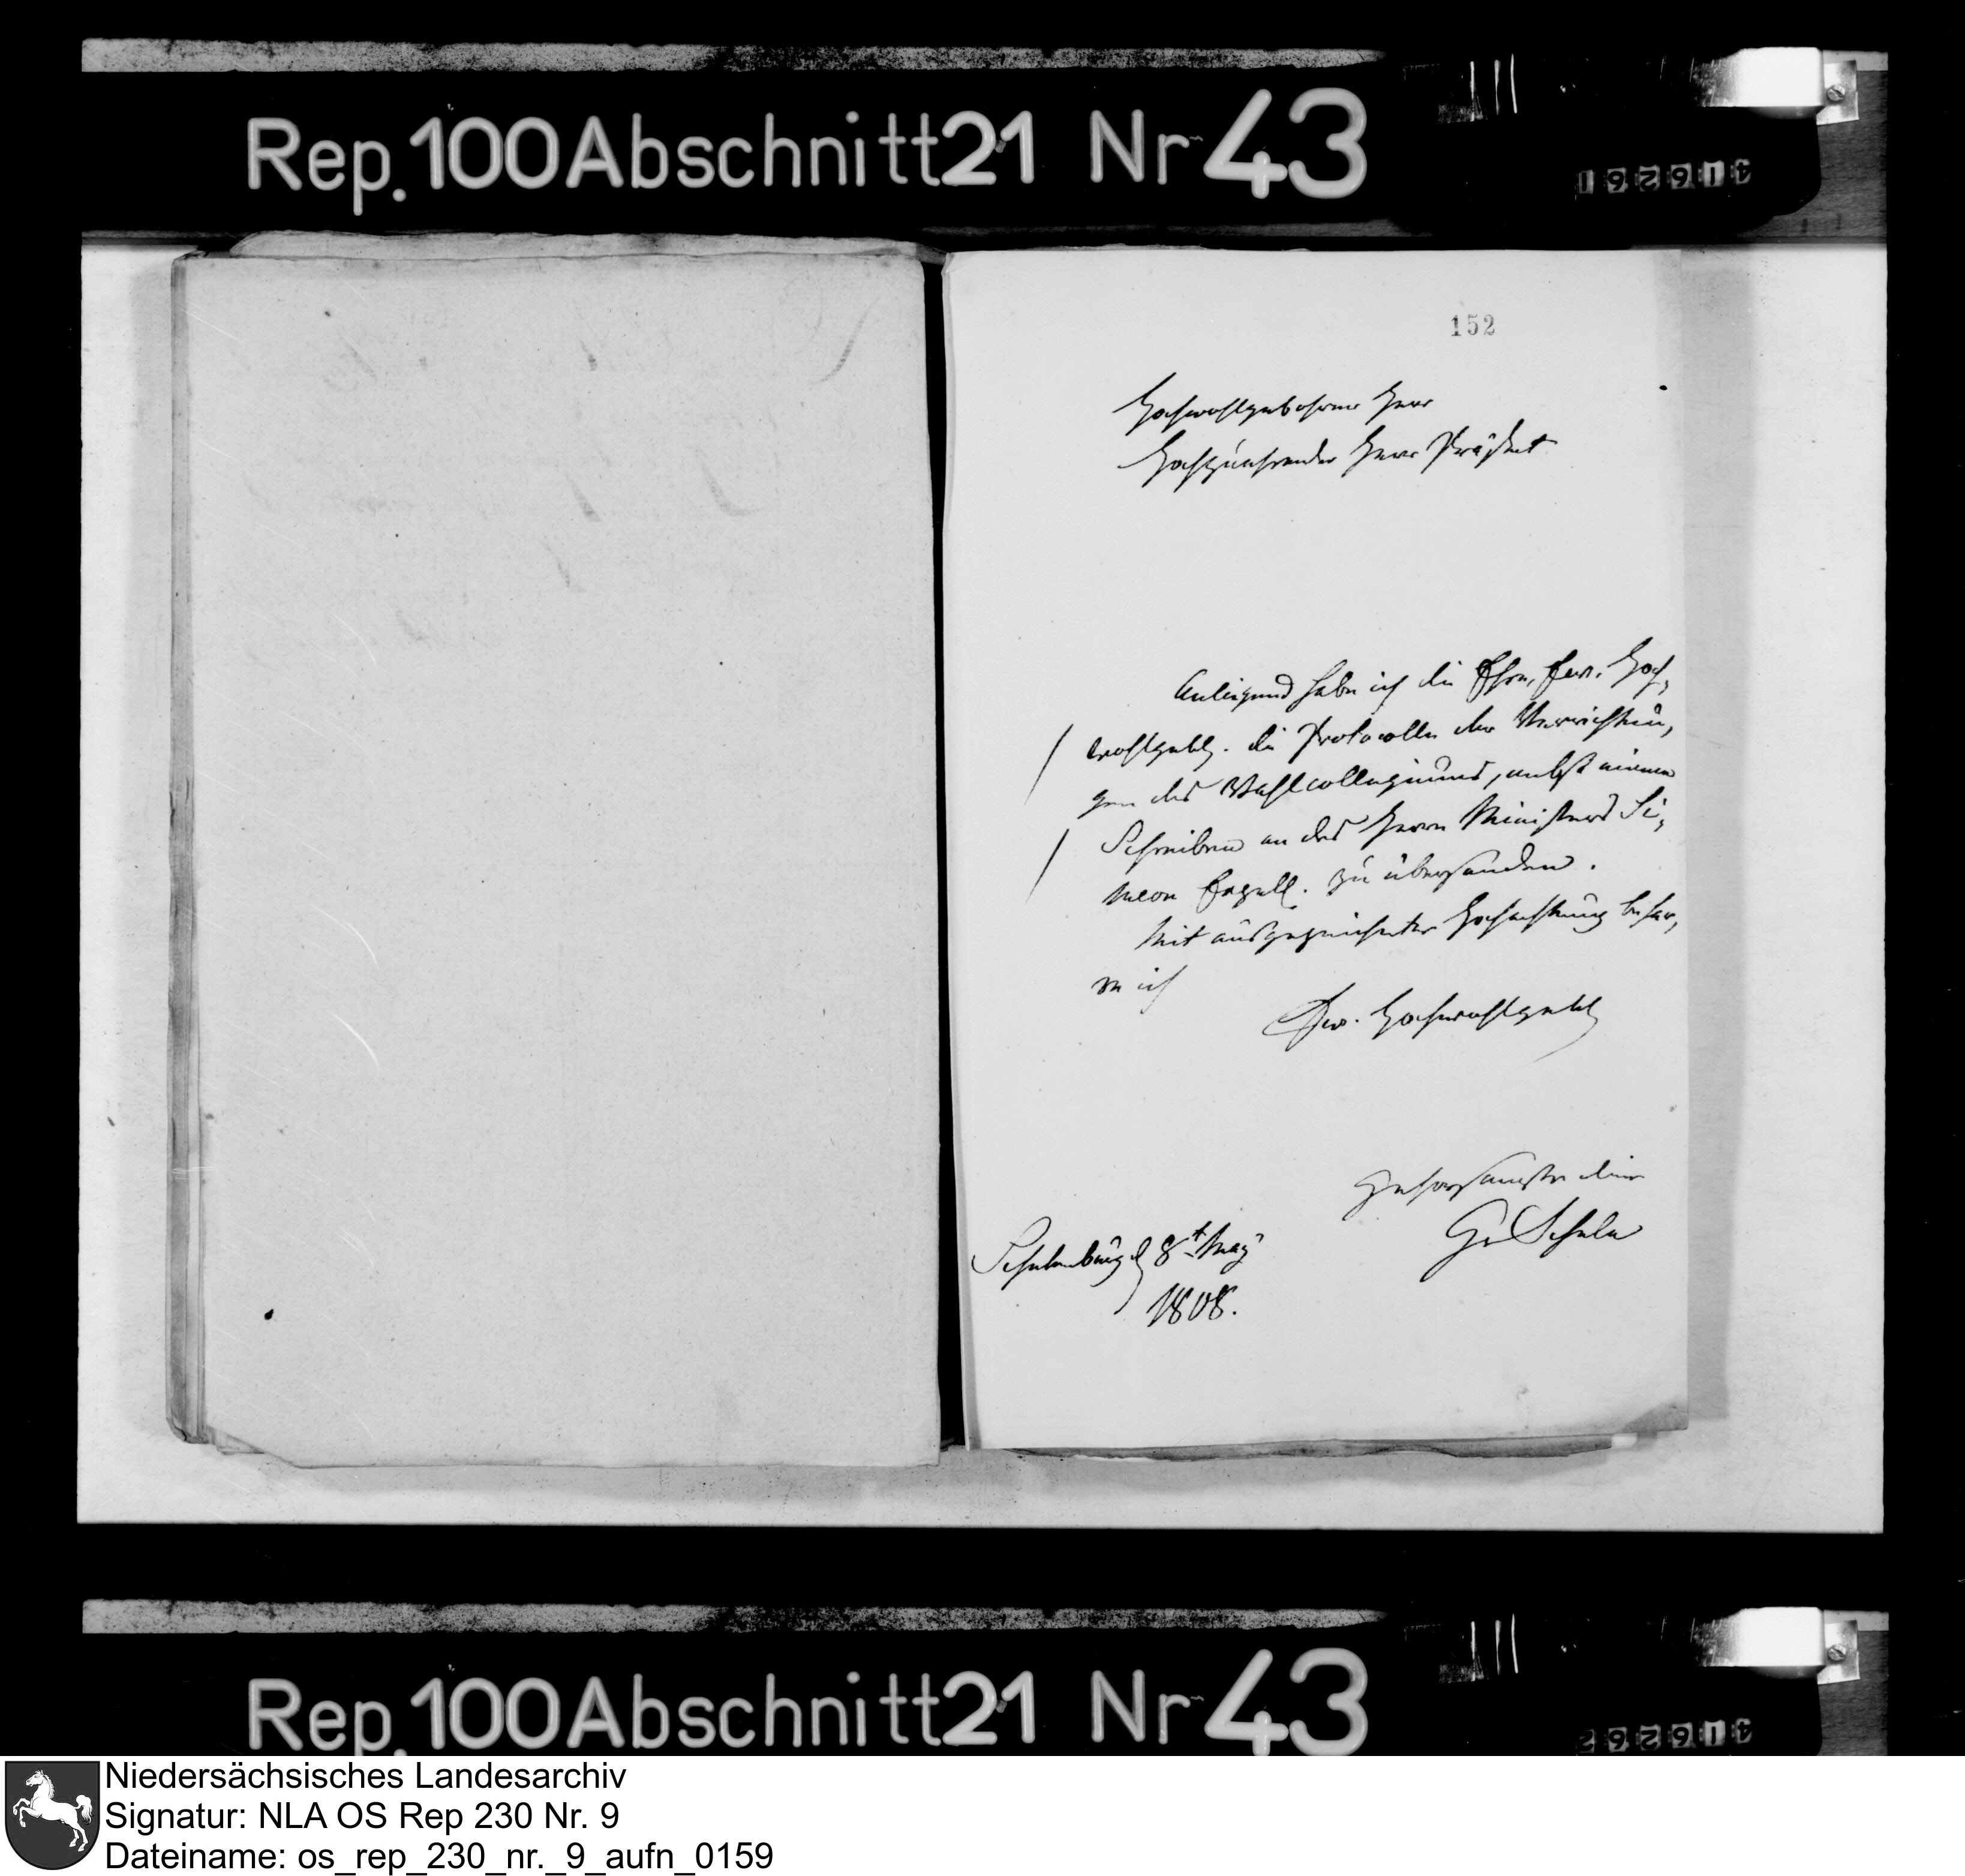 Rep. 100 Abschnitt 21 Nr 43
152
Hochwohlgebohrner Herr
Hochzuehrender Herr Präfect
Anliegend habe ich die Ehre, Ew. Hoch-
wohlgebl. die Protocolle der Verrichtun-
gen des Wahlcollegiums, nebst einem
Schreiben an des Herrn Ministers Si-
meon Excell. zu übersenden.
Mit ausgezeichneter Hochachtung behar-
re ich
Ew. Hochwohlgebl
gehorsamster Diener
Gr. Schele
Schelenburg d 8t May
1808.
Rep. 100 Abschnitt 21 Nr 43
Niedersächsisches Landesarchiv
Signatur: NLA OS Rep 230 Nr. 9
Dateiname: os_rep_230_nr._9_aufn_0159